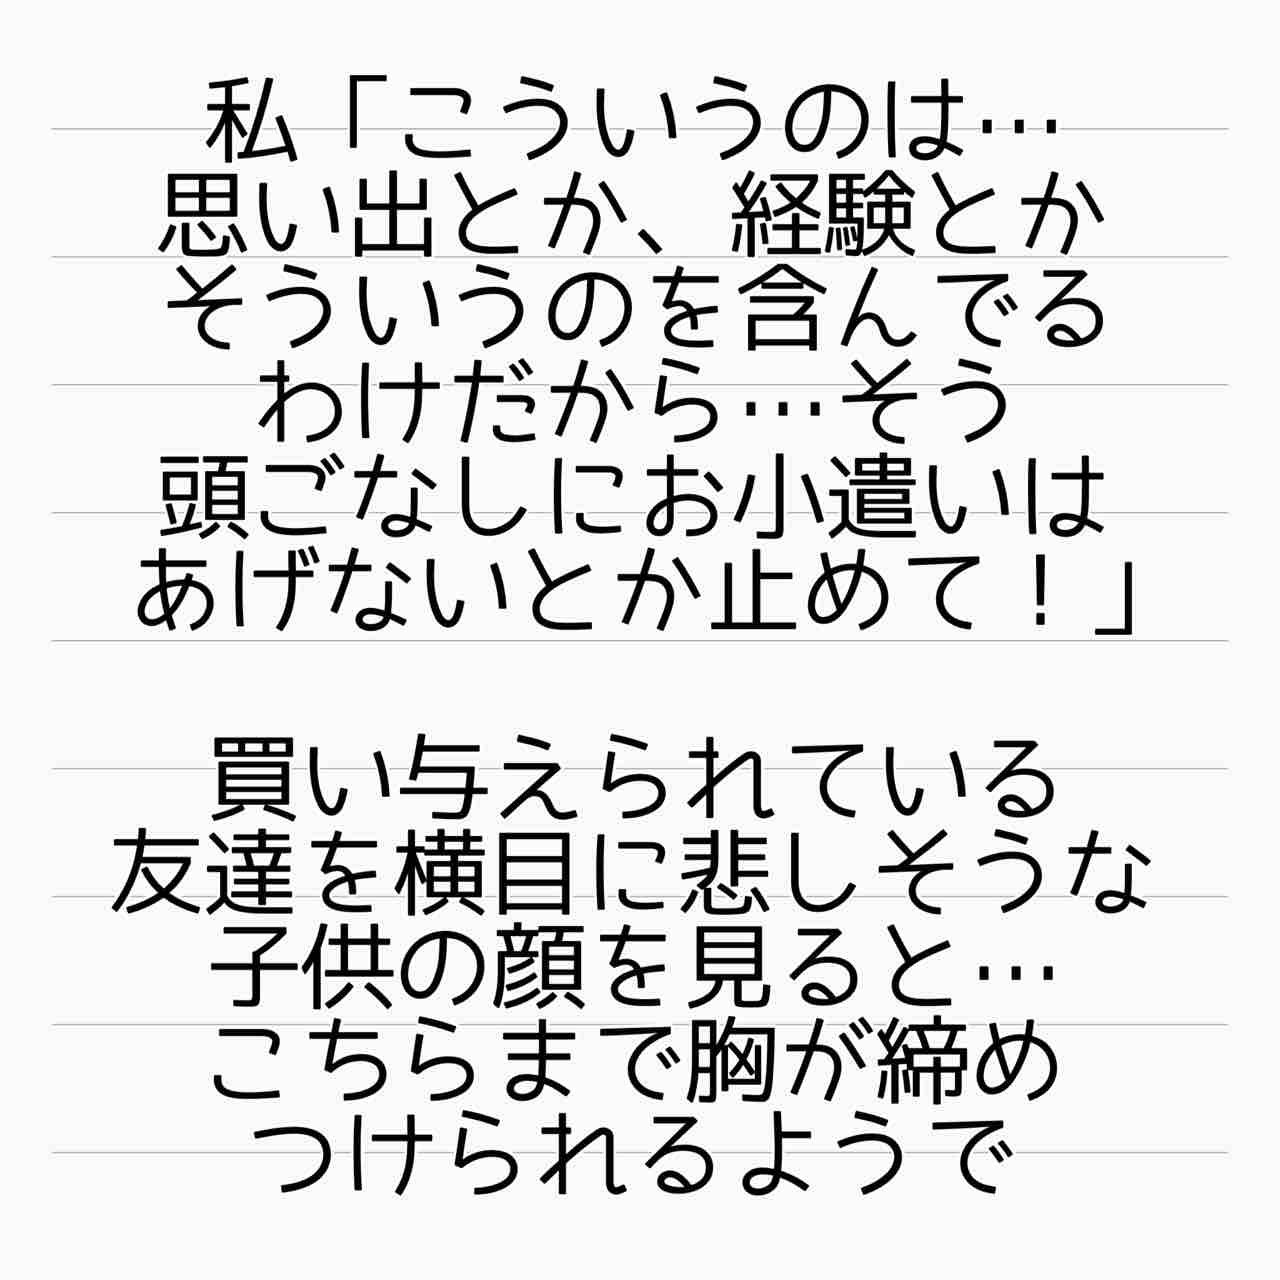 私「こういうのは…
思い出とか、経験とか
そういうのを含んでる
わけだから…そう
頭ごなしにお小遣いは
あげないとか止めて！」
買い与えられている
友達を横目に悲しそうな
子供の顔を見ると…
こちらまで胸が締め
つけられるようで